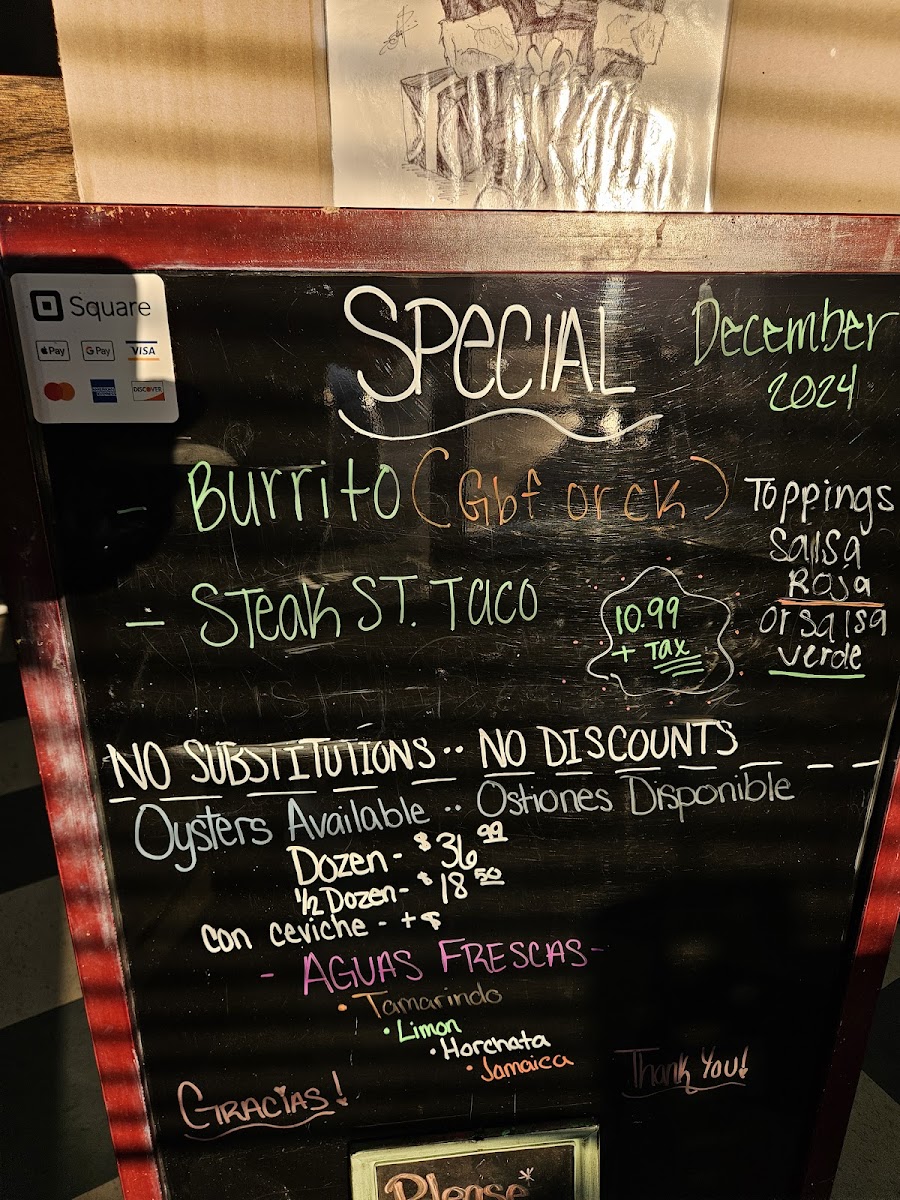 Square
Pay
G Pay
VISA
DISCOVER
SPECIAL
December
2024
- Burrito (Gbf or ck)
- Steak ST. Taco
10.99
+ Tax
Toppings
Salsa
Roja
or salsa
verde
NO SUBSTITUTIONS .. NO DISCOUNTS
Oysters Available .. Ostiones Disponible
Dozen - $36.99
1/2 Dozen - $18.50
con ceviche - +$
- AGUAS FRESCAS -
• Tamarindo
• Limon
• Horchata
• Jamaica
GRACIAS!
Thank You!
Please*